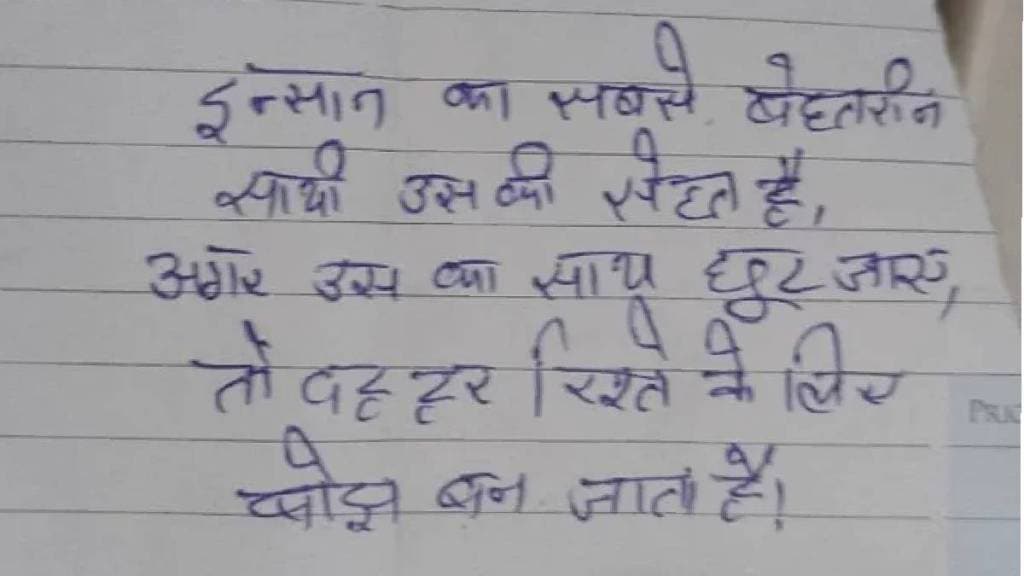 इन्सान का सबसे बेहतरीन
साथी उस की सेहत है,
अगर उस का साथ छुट जाए,
तो वह हर रिश्ते के लिए
बोझ बन जाता है।